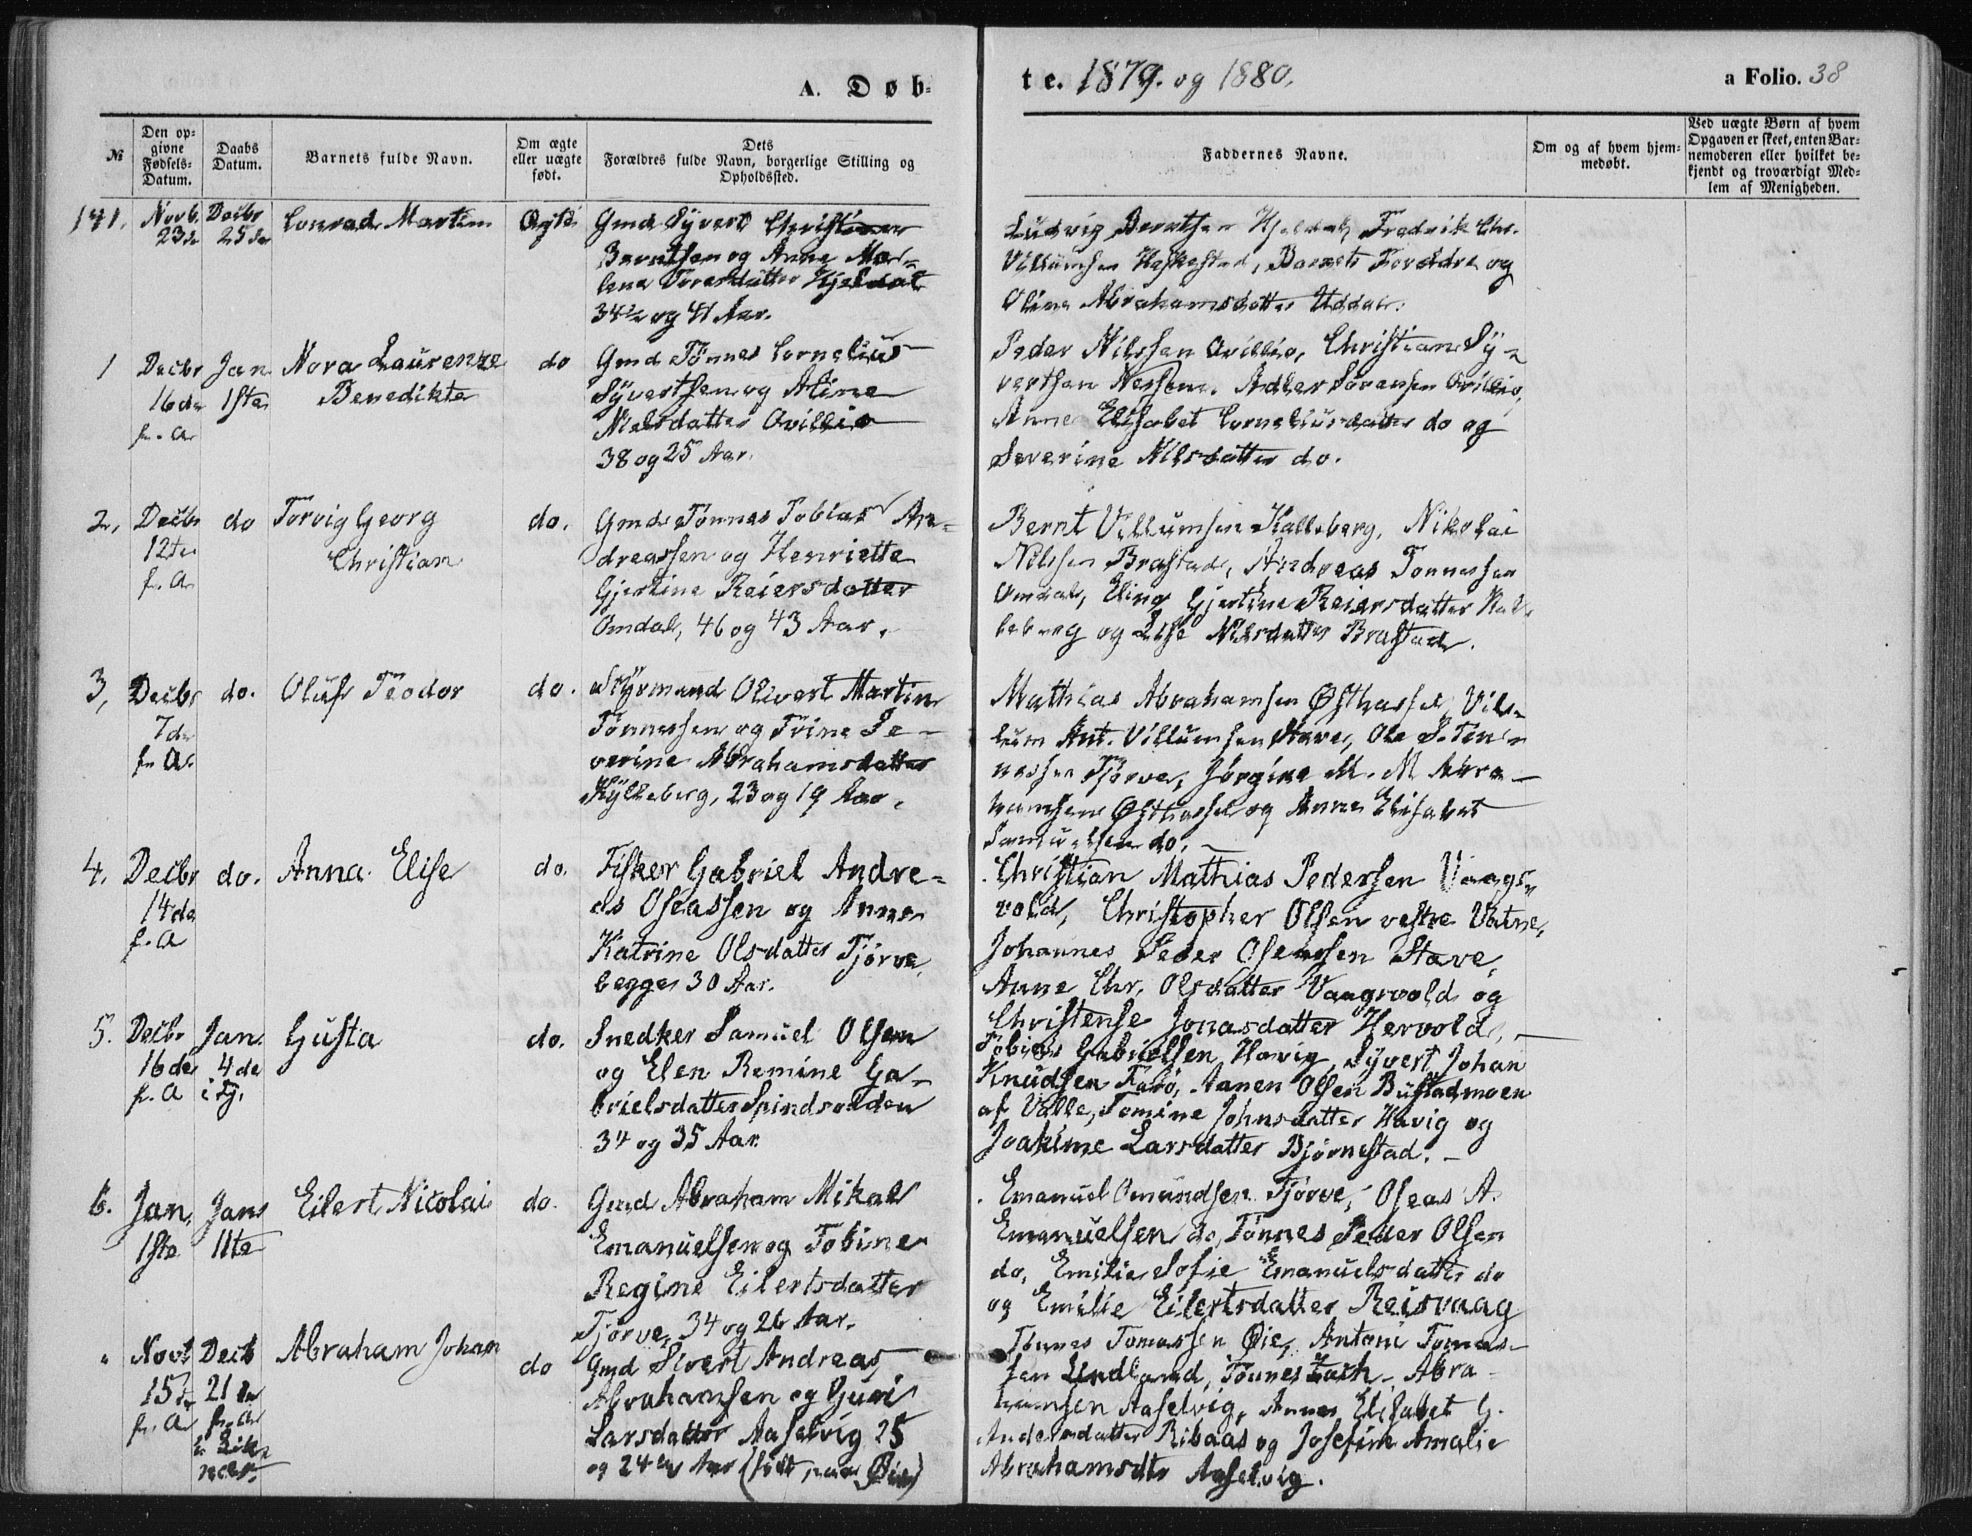 A. Døb-
te. 1879. og 1880.
a Folio. 38
№
Den op-
givne
Fødsels-
Datum.
Daabs
Datum.
Barnets fulde Navn.
Om ægte
eller uægte
født.
Dets
Forældres fulde Navn, borgerlige Stilling og
Opholdssted.
Faddernes Navne.
Om og af hvem hjem-
medøbt.
Ved uægte Børn af hvem
Opgaven er skeet, enten Bar-
nemoderen eller hvilket be-
kjendt og troværdigt Med-
lem af Menigheden.
141.
Novb.
23de
Decbr
25de
Conrad Martin
Ægte
Gmd Syvert Christian
Berntsen og Anne Ma-
lene Toresdatter Hjeldal
34½ og 41 Aar.
Ludvig Berntsen Hjeldal, Fredrik Chr.
Villumsen Heskestad, Barnets Forældre og
Oline Abrahamsdatter Uddal.
1
Decbr
16de
f. A
Jan
1ste
Nora Laurenze
Benedikte
do
Gmd Tønnes Cornelius
Syvertsen og Aline
Nilsdatter Qvillio
38 og 25 Aar.
Peder Nilssen Qvillio, Christian Sy-
vertsen Nessem. Adler Sørensen Qvillio,
Anne Elisabet Corneliusdatter do og
Severine Nilsdatter do.
2,
Decbr
12te
f. A
do
Torvig Georg
Christian
do.
Gmd Tønnes Tobias An-
dreassen og Henriette
Gjertine Reiersdatter
Omdal, 46 og 43 Aar.
Bernt Villumsen Kalleberg, Nikolai
Nilssen Brastad, Andreas Tønnessen
Omdal, Elina Gjertine Reiersdatter Kal-
leberg og Else Nilsdatter Brastad.
3,
Decbr
7de
f. A.
do.
Oluf Teodor
do.
Styrmand Olivert Martin
Tønnessen og Trine Se-
verine Abrahamsdatter
Kylleberg, 23 og 19 Aar.
Mathias Abrahamsen Østhassel, Vil-
lum Ant. Villumsen Stave, Ole S. Tøn-
nessen Tjørve, Jørgine M. M Abra-
hamsen Østhassel og Anne Elisabet
Samuelsen do.
4.
Decbr
14de
f. A
do.
Anna Elise
do.
Fisker Gabriel Andre-
as Oseassen og Anne
Katrine Olsdatter Tjørve,
begge 30 Aar.
Christian Mathias Pedersen Vaags-
vold, Christopher Olsen vestre Vatne,
Johannes Peder Oseassen Stave,
Anne Chr. Olsdatter Vaagsvold og
Christense Jonasdatter Hervold.
5.
Decbr
16de
f. A
Jan.
4de
i Kj.
Gusta
do.
Snedker Samuel Olsen
og Elen Remine Ga-
brielsdatter Spindsodden
34 og 35 Aar.
Tobias Gabrielsen Havig, Syvert Johan
Knudsen Farø, Aanen Olsen Bustadmoen
af Valle, Tomine Johnsdatter Havig og
Joakime Larsdatter Bjørnestad.
6.
Jan.
1ste
Jan.
11te
Eilert Nicolai
do.
Gmd Abraham Mikal
Emanuelsen og Tobine
Regine Eilertsdatter
Tjørve, 34 og 26 Aar.
Emanuel Omundsen Tjørve, Oseas A.
Emanuelsen do, Tønnes Peder Olsen
do, Emilie Sofie Emanuelsdatter do
og Emilie Eilertsdatter Reisvaag
"
Novb
15de
f. A
Decb
21de
f. A
Abraham Johan
do
Gmd Sivert Andreas
Abrahamsen og Guri
Larsdatter Aaselvig 25
og 24 Aar (født paa Øie)
Tønnes Tomassen Øie, Antoni Tomas-
sen Lindland, Tønnes Zach. Abra-
hamsen Aaselvig, Anne Elisabet G.
Andersdatter Ribaas og Josefine Amalie
Abrahamsdtr Aaselvig.